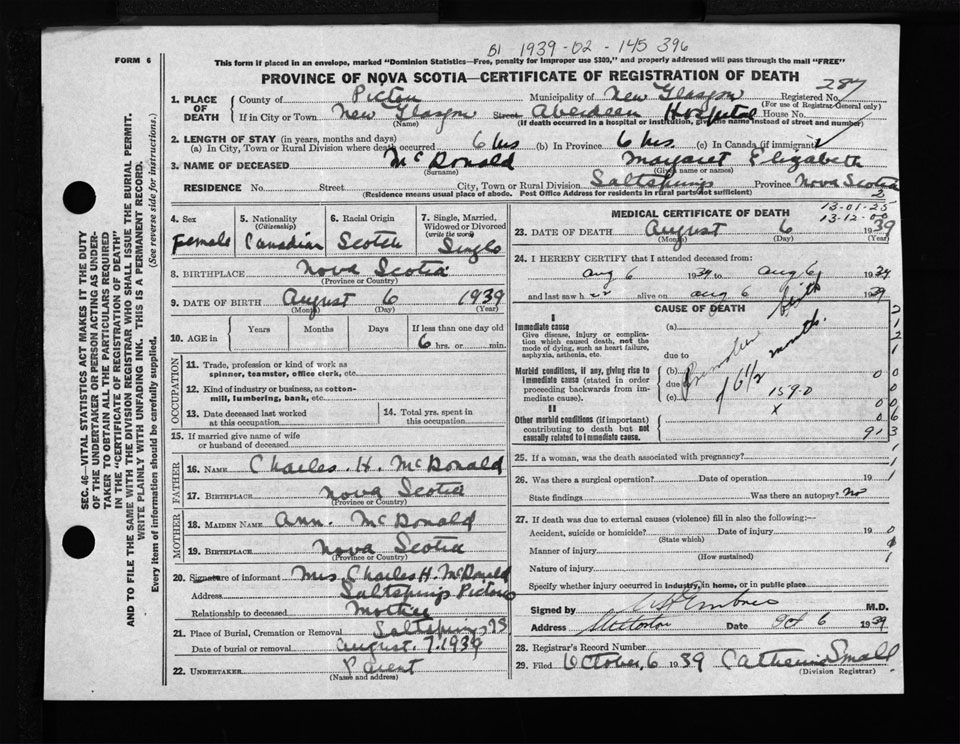 B1 1939-02-145396
FORM 6
This form if placed in an envelope, marked "Dominion Statistics—Free, penalty for improper use $300," and properly addressed will pass through the mail "FREE"
PROVINCE OF NOVA SCOTIA—CERTIFICATE OF REGISTRATION OF DEATH
287
1. PLACE OF DEATH County of Pictou Municipality of New Glasgow Registered No.
(For use of Registrar-General only)
If in City or Town New Glasgow Street Aberdeen Hospital House No.
(Name) (If death occurred in a hospital or institution, give the name instead of street and number)
2. LENGTH OF STAY (in years, months and days)
(a) In City, Town or Rural Division where death occurred 6 hrs (b) In Province 6 hrs. (c) In Canada (if immigrant)
3. NAME OF DECEASED McDonald Margaret Elizabeth
(Surname) (Given name or names)
RESIDENCE No. Street City, Town or Rural Division Saltsprings Province Nova Scotia
(Residence means usual place of abode. Post Office Address for residents in rural parts not sufficient)
13-01-25
13-12-00
4. Sex Female
5. Nationality (Citizenship) Canadian
6. Racial Origin Scotch
7. Single, Married, Widowed or Divorced (write the word) Single
8. BIRTHPLACE Nova Scotia
(Province or Country)
9. DATE OF BIRTH August 6 1939
(Month) (Day) (Year)
10. AGE in Years Months Days If less than one day old
6 hrs. or min.
OCCUPATION
11. Trade, profession or kind of work as spinner, teamster, office clerk, etc.
12. Kind of industry or business, as cotton-mill, lumbering, bank, etc.
13. Date deceased last worked at this occupation
14. Total yrs. spent in this occupation.
15. If married give name of wife or husband of deceased
FATHER
16. NAME Charles. H. McDonald
17. BIRTHPLACE Nova Scotia
(Province or Country)
MOTHER
18. MAIDEN NAME Ann. McDonald
19. BIRTHPLACE Nova Scotia
(Province or Country)
20. Signature of informant Mrs Charles H. McDonald
Address Saltsprings Pictou
Relationship to deceased Mother
21. Place of Burial, Cremation or Removal Saltsprings, NS
Date of burial or removal August. 7. 1939
22. UNDERTAKER Parent
(Name and address)
MEDICAL CERTIFICATE OF DEATH
23. DATE OF DEATH August 6 1939
(Month) (Day) (Year)
24. I HEREBY CERTIFY that I attended deceased from:
Aug 6 1939 to Aug 6 1939
and last saw h er alive on Aug 6 1939
CAUSE OF DEATH
I
Immediate cause
Give disease, injury or complication which caused death, not the mode of dying, such as heart failure, asphyxia, asthenia, etc.
Morbid conditions, if any, giving rise to immediate cause (stated in order proceeding backwards from immediate cause).
II
Other morbid conditions (if important) contributing to death but not causally related to immediate cause.
(a)
due to
(b)
due to
(c)
Premature birth
6 1/2 months
159.0
x
25. If a woman, was the death associated with pregnancy?
26. Was there a surgical operation? Date of operation 19
State findings Was there an autopsy? No
27. If death was due to external causes (violence) fill in also the following:—
Accident, suicide or homicide? Date of injury 19
(State which)
Manner of injury
(How sustained)
Nature of injury
Specify whether injury occurred in industry, in home, or in public place
Signed by M.D.
Address Stellarton Date Oct 6 1939
28. Registrar's Record Number
29. Filed October, 6 1939 Catherine Small
(Division Registrar)
SEC. 46—VITAL STATISTICS ACT MAKES IT THE DUTY
OF THE UNDERTAKER OR PERSON ACTING AS UNDER-
TAKER TO OBTAIN ALL THE PARTICULARS REQUIRED
IN THE "CERTIFICATE OF REGISTRATION OF DEATH"
AND TO FILE THE SAME WITH THE DIVISION REGISTRAR WHO SHALL ISSUE THE BURIAL PERMIT.
WRITE PLAINLY WITH UNFADING INK. THIS IS A PERMANENT RECORD.
Every item of information should be carefully supplied. (See reverse side for instructions.)